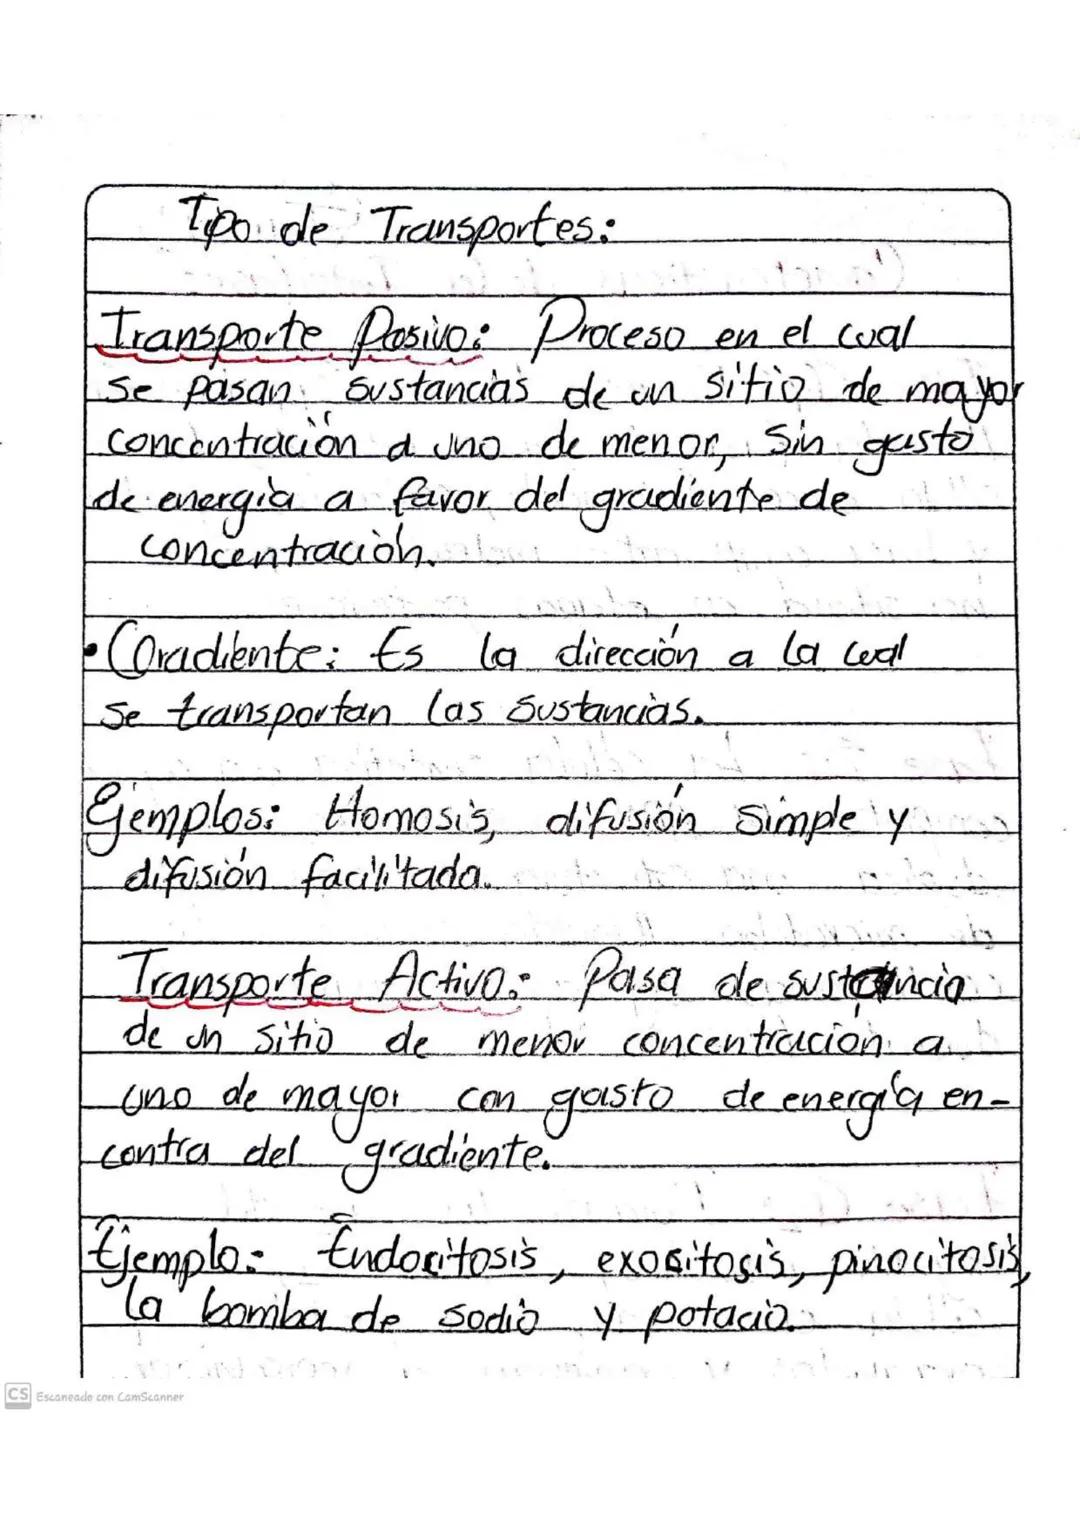 Tipo de Transportes:
Transporte Pasivo: Proceso en el cual
se pasan sustancias de un sitio de mayor
concentración a uno de menor, sin gasto
de energía a favor del gradiente de
concentración.
• Gradiente: Es la dirección a la cual
se transportan las sustancias.
Ejemplos: Homosis, difusión simple y
difusión facilitada.
Transporte Activo: Pasa de sustancia
de un sitio de menor concentración a
uno de mayor con gasto de energía en-
contra del gradiente.
Ejemplo: Endocitosis, exositosis, pinocitosis,
la bomba de sodio y potacio.
CS Escaneado con CamScanner